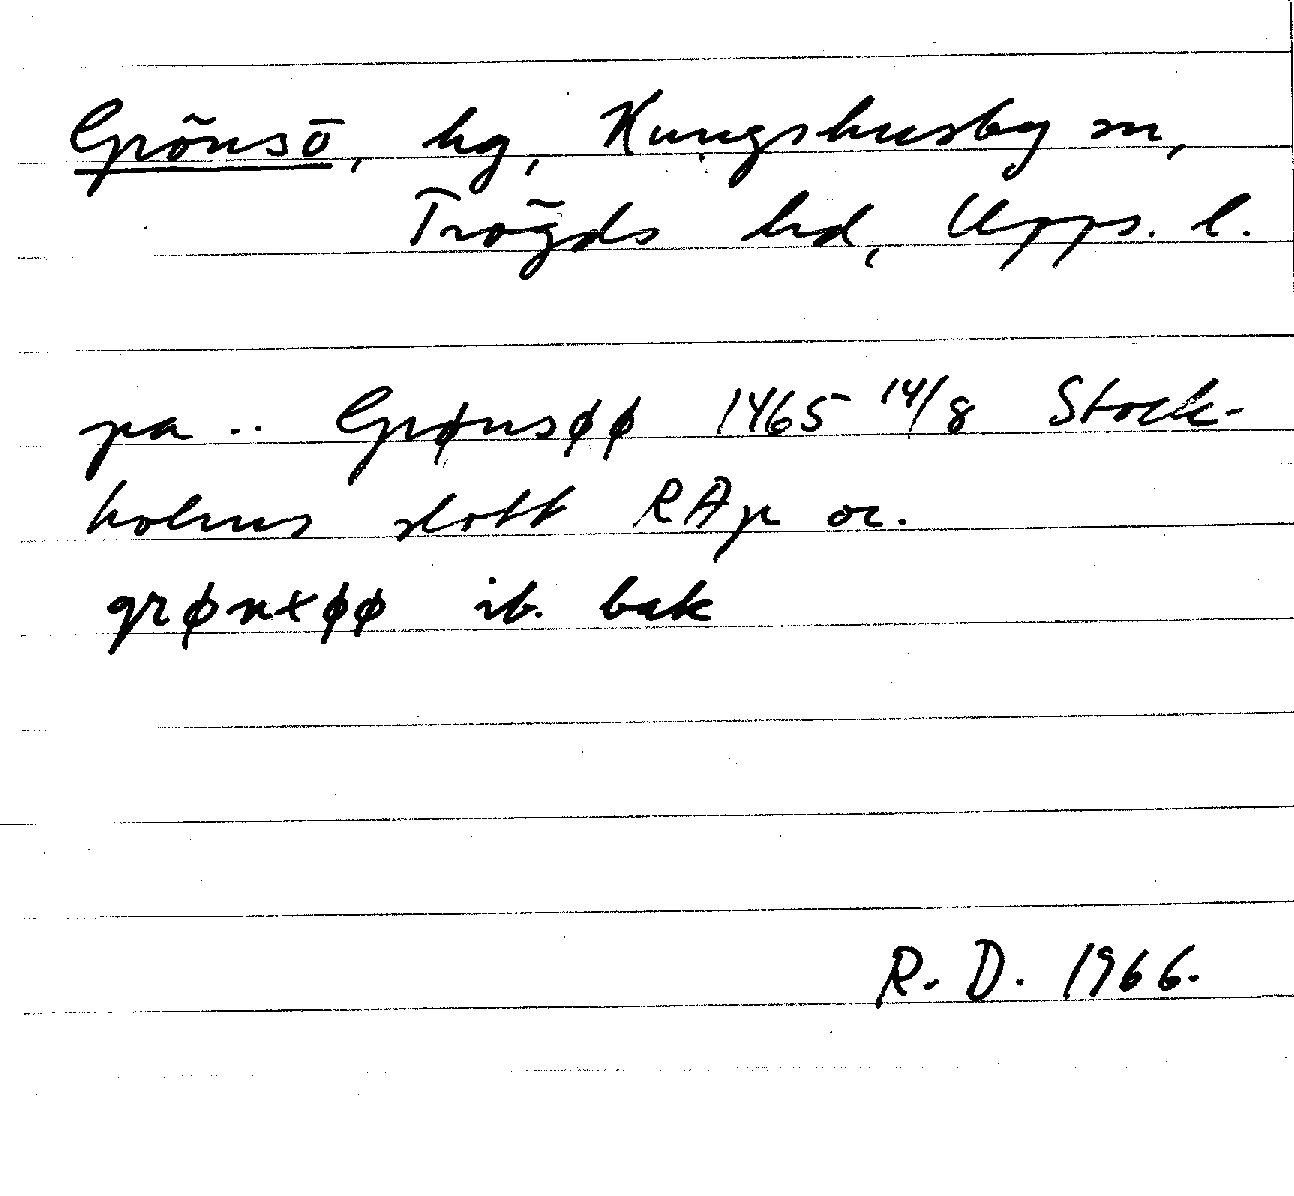 Grönsö, hg, Kungshusby sn,
Trögds hd, Upps. l.
pa .. Grønsøø 1465 14/8 Stock-
holms slott RAp or.
grønxøø ib. bak
R. D. 1966.